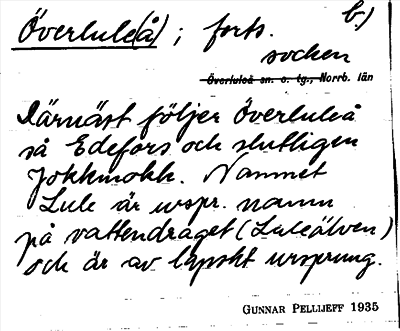 Överlule(å) ; forts. b.)
socken
Överluleå sn. o. tg., Norrb. län
Därnäst följer Överluleå
så Edefors och slutligen
Jokkmokk. Namnet
Lule är urspr. namn
på vattendraget (Luleälven)
och är av lapskt ursprung.
GUNNAR PELLIJEFF 1935